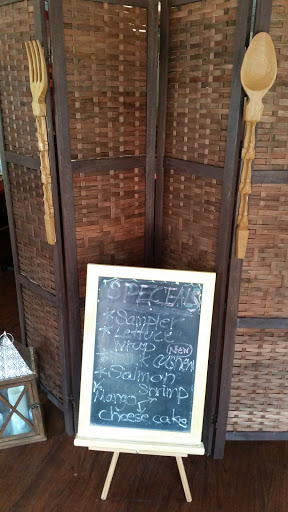 SPECIALS
* Sampler
* Lettuce
Wrap New
* Cashew
* Salmon
* Shrimp
Mango
cheese cake